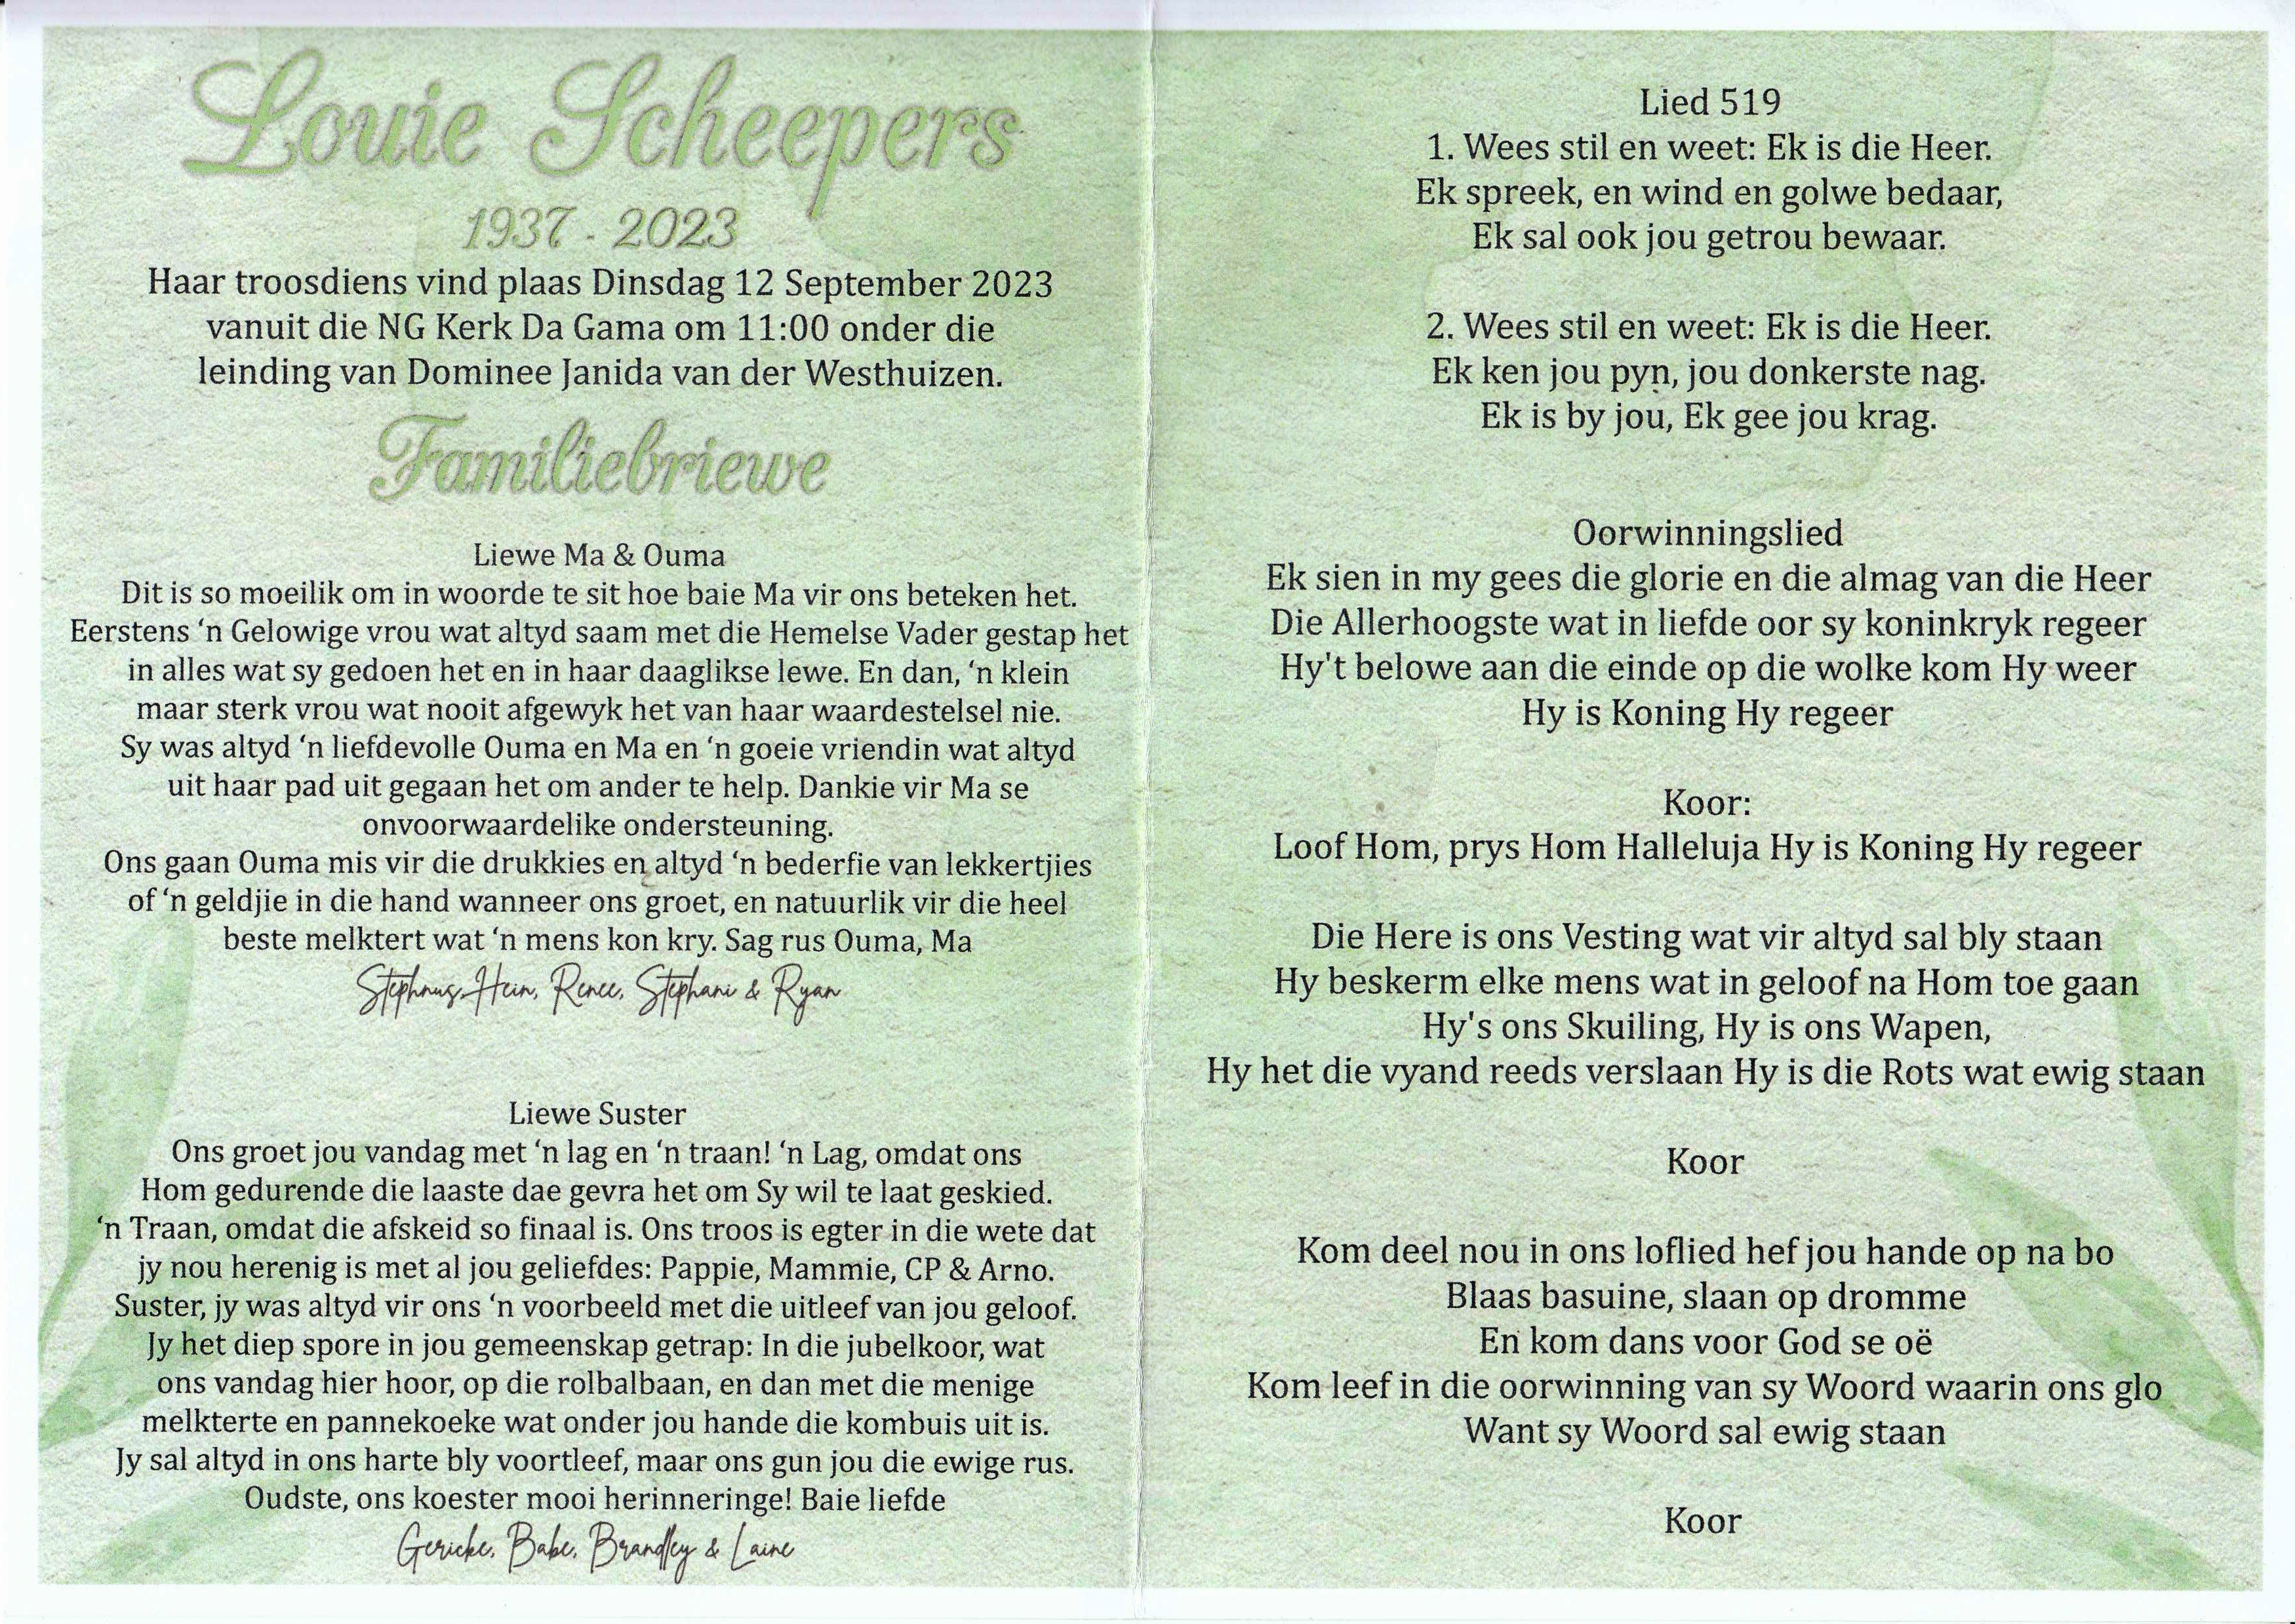 Louie Scheepers
1937 - 2023
Haar troosdiens vind plaas Dinsdag 12 September 2023
vanuit die NG Kerk Da Gama om 11:00 onder die
leinding van Dominee Janida van der Westhuizen.
Familiebriewe
Liewe Ma & Ouma
Dit is so moeilik om in woorde te sit hoe baie Ma vir ons beteken het.
Eerstens ‘n Gelowige vrou wat altyd saam met die Hemelse Vader gestap het
in alles wat sy gedoen het en in haar daaglikse lewe. En dan, ‘n klein
maar sterk vrou wat nooit afgewyk het van haar waardestelsel nie.
Sy was altyd ‘n liefdevolle Ouma en Ma en ‘n goeie vriendin wat altyd
uit haar pad uit gegaan het om ander te help. Dankie vir Ma se
onvoorwaardelike ondersteuning.
Ons gaan Ouma mis vir die drukkies en altyd ‘n bederfie van lekkertjies
of ‘n geldjie in die hand wanneer ons groet, en natuurlik vir die heel
beste melktert wat ‘n mens kon kry. Sag rus Ouma, Ma
Stephnus, Hein, Renee, Stephani & Ryan
Liewe Suster
Ons groet jou vandag met ‘n lag en ‘n traan! ‘n Lag, omdat ons
Hom gedurende die laaste dae gevra het om Sy wil te laat geskied.
‘n Traan, omdat die afskeid so finaal is. Ons troos is egter in die wete dat
jy nou herenig is met al jou geliefdes: Pappie, Mammie, CP & Arno.
Suster, jy was altyd vir ons ‘n voorbeeld met die uitleef van jou geloof.
Jy het diep spore in jou gemeenskap getrap: In die jubelkoor, wat
ons vandag hier hoor, op die rolbalbaan, en dan met die menige
melkterte en pannekoeke wat onder jou hande die kombuis uit is.
Jy sal altyd in ons harte bly voortleef, maar ons gun jou die ewige rus.
Oudste, ons koester mooi herinneringe! Baie liefde
Gericke, Babe, Brandley & Laine
Lied 519
1. Wees stil en weet: Ek is die Heer.
Ek spreek, en wind en golwe bedaar,
Ek sal ook jou getrou bewaar.
2. Wees stil en weet: Ek is die Heer.
Ek ken jou pyn, jou donkerste nag.
Ek is by jou, Ek gee jou krag.
Oorwinningslied
Ek sien in my gees die glorie en die almag van die Heer
Die Allerhoogste wat in liefde oor sy koninkryk regeer
Hy't belowe aan die einde op die wolke kom Hy weer
Hy is Koning Hy regeer
Koor:
Loof Hom, prys Hom Halleluja Hy is Koning Hy regeer
Die Here is ons Vesting wat vir altyd sal bly staan
Hy beskerm elke mens wat in geloof na Hom toe gaan
Hy's ons Skuiling, Hy is ons Wapen,
Hy het die vyand reeds verslaan Hy is die Rots wat ewig staan
Koor
Kom deel nou in ons loflied hef jou hande op na bo
Blaas basuine, slaan op dromme
En kom dans voor God se oë
Kom leef in die oorwinning van sy Woord waarin ons glo
Want sy Woord sal ewig staan
Koor